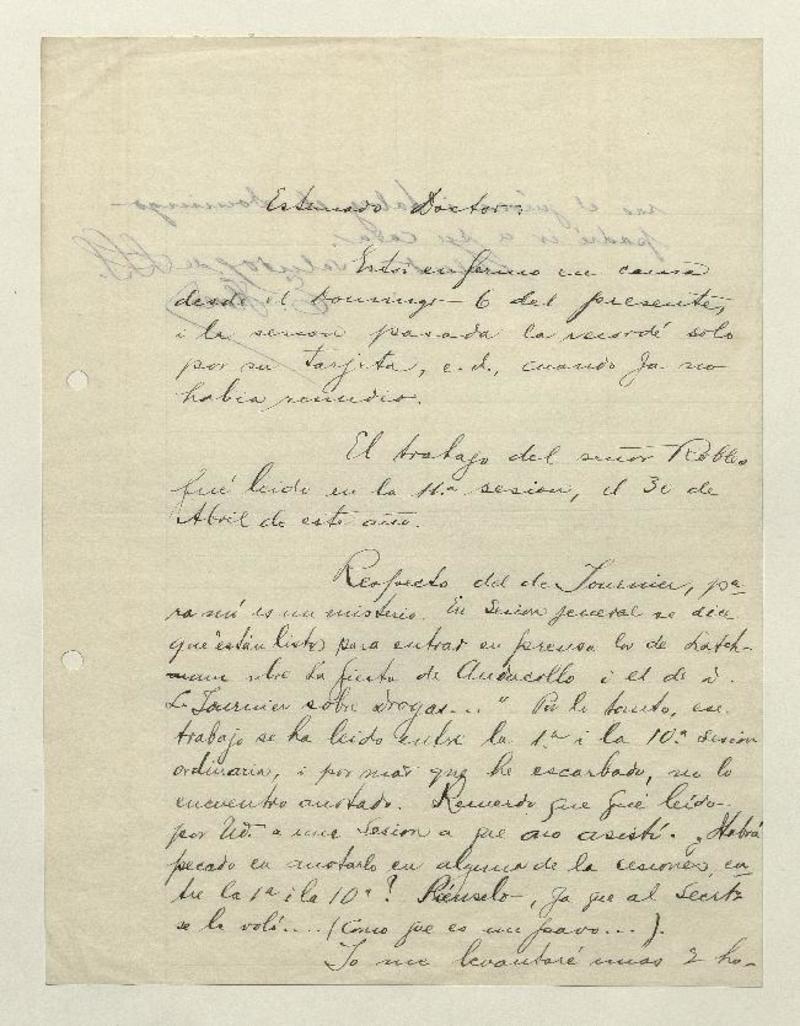 Estimado Doctor:
Estoi enfermo en cama
desde el Domingo 6 del presente,
i la seman pasada la recordé solo
por su tarjeta, e.d., cuando ya no
habia remedio.
El trabajo del señor Robles
fué leido en la 11.ª sesion, el 30 de
Abril de este año.
Respecto del de Fournier, pa-
ra mí es un misterio. En Sesion jeneral se dice
que "están listos para entrar en prensa los de Latch-
mam sbre la fiesta de Andacollo i el de D.
L. Fournier sobre Drogas..." Por lo tanto, ese
trabajo se ha leido entre la 1.ª i la 10.ª Sesion
ordinaria, i por mas que he escarbado, no lo
encuentro anotado. Recuerdo que fué leido
por Ud. a una Sesion a que no asistí. ¿Habrá
pecado en anotarlo en alguna de la cesiones, en-
tre la 1ª i la 10ª? Piénselo, ya que al Secrt
se le voló.... (Como que es un pavo...).
Yo me levantaré unas 2 ho-